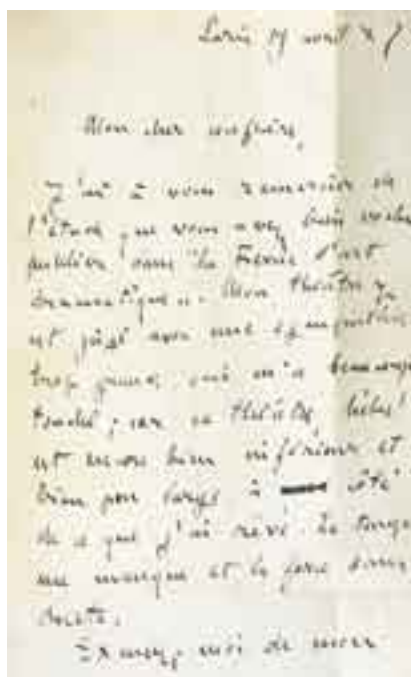 Paris 17 avril 87
Mon cher confrère,
J'ai à vous remercier de
l'étude que vous avez bien voulu
publier dans la Revue d'art
dramatique. Mon théâtre y
est jugé avec une sympathie
trop grande, qui m'a beaucoup
touché ; car ce théâtre, hélas !
est encore bien inférieur et
bien peu large à côté
de ce que j'ai rêvé. Le temps
me manque et la force sans
doute.
Excusez-moi de mon